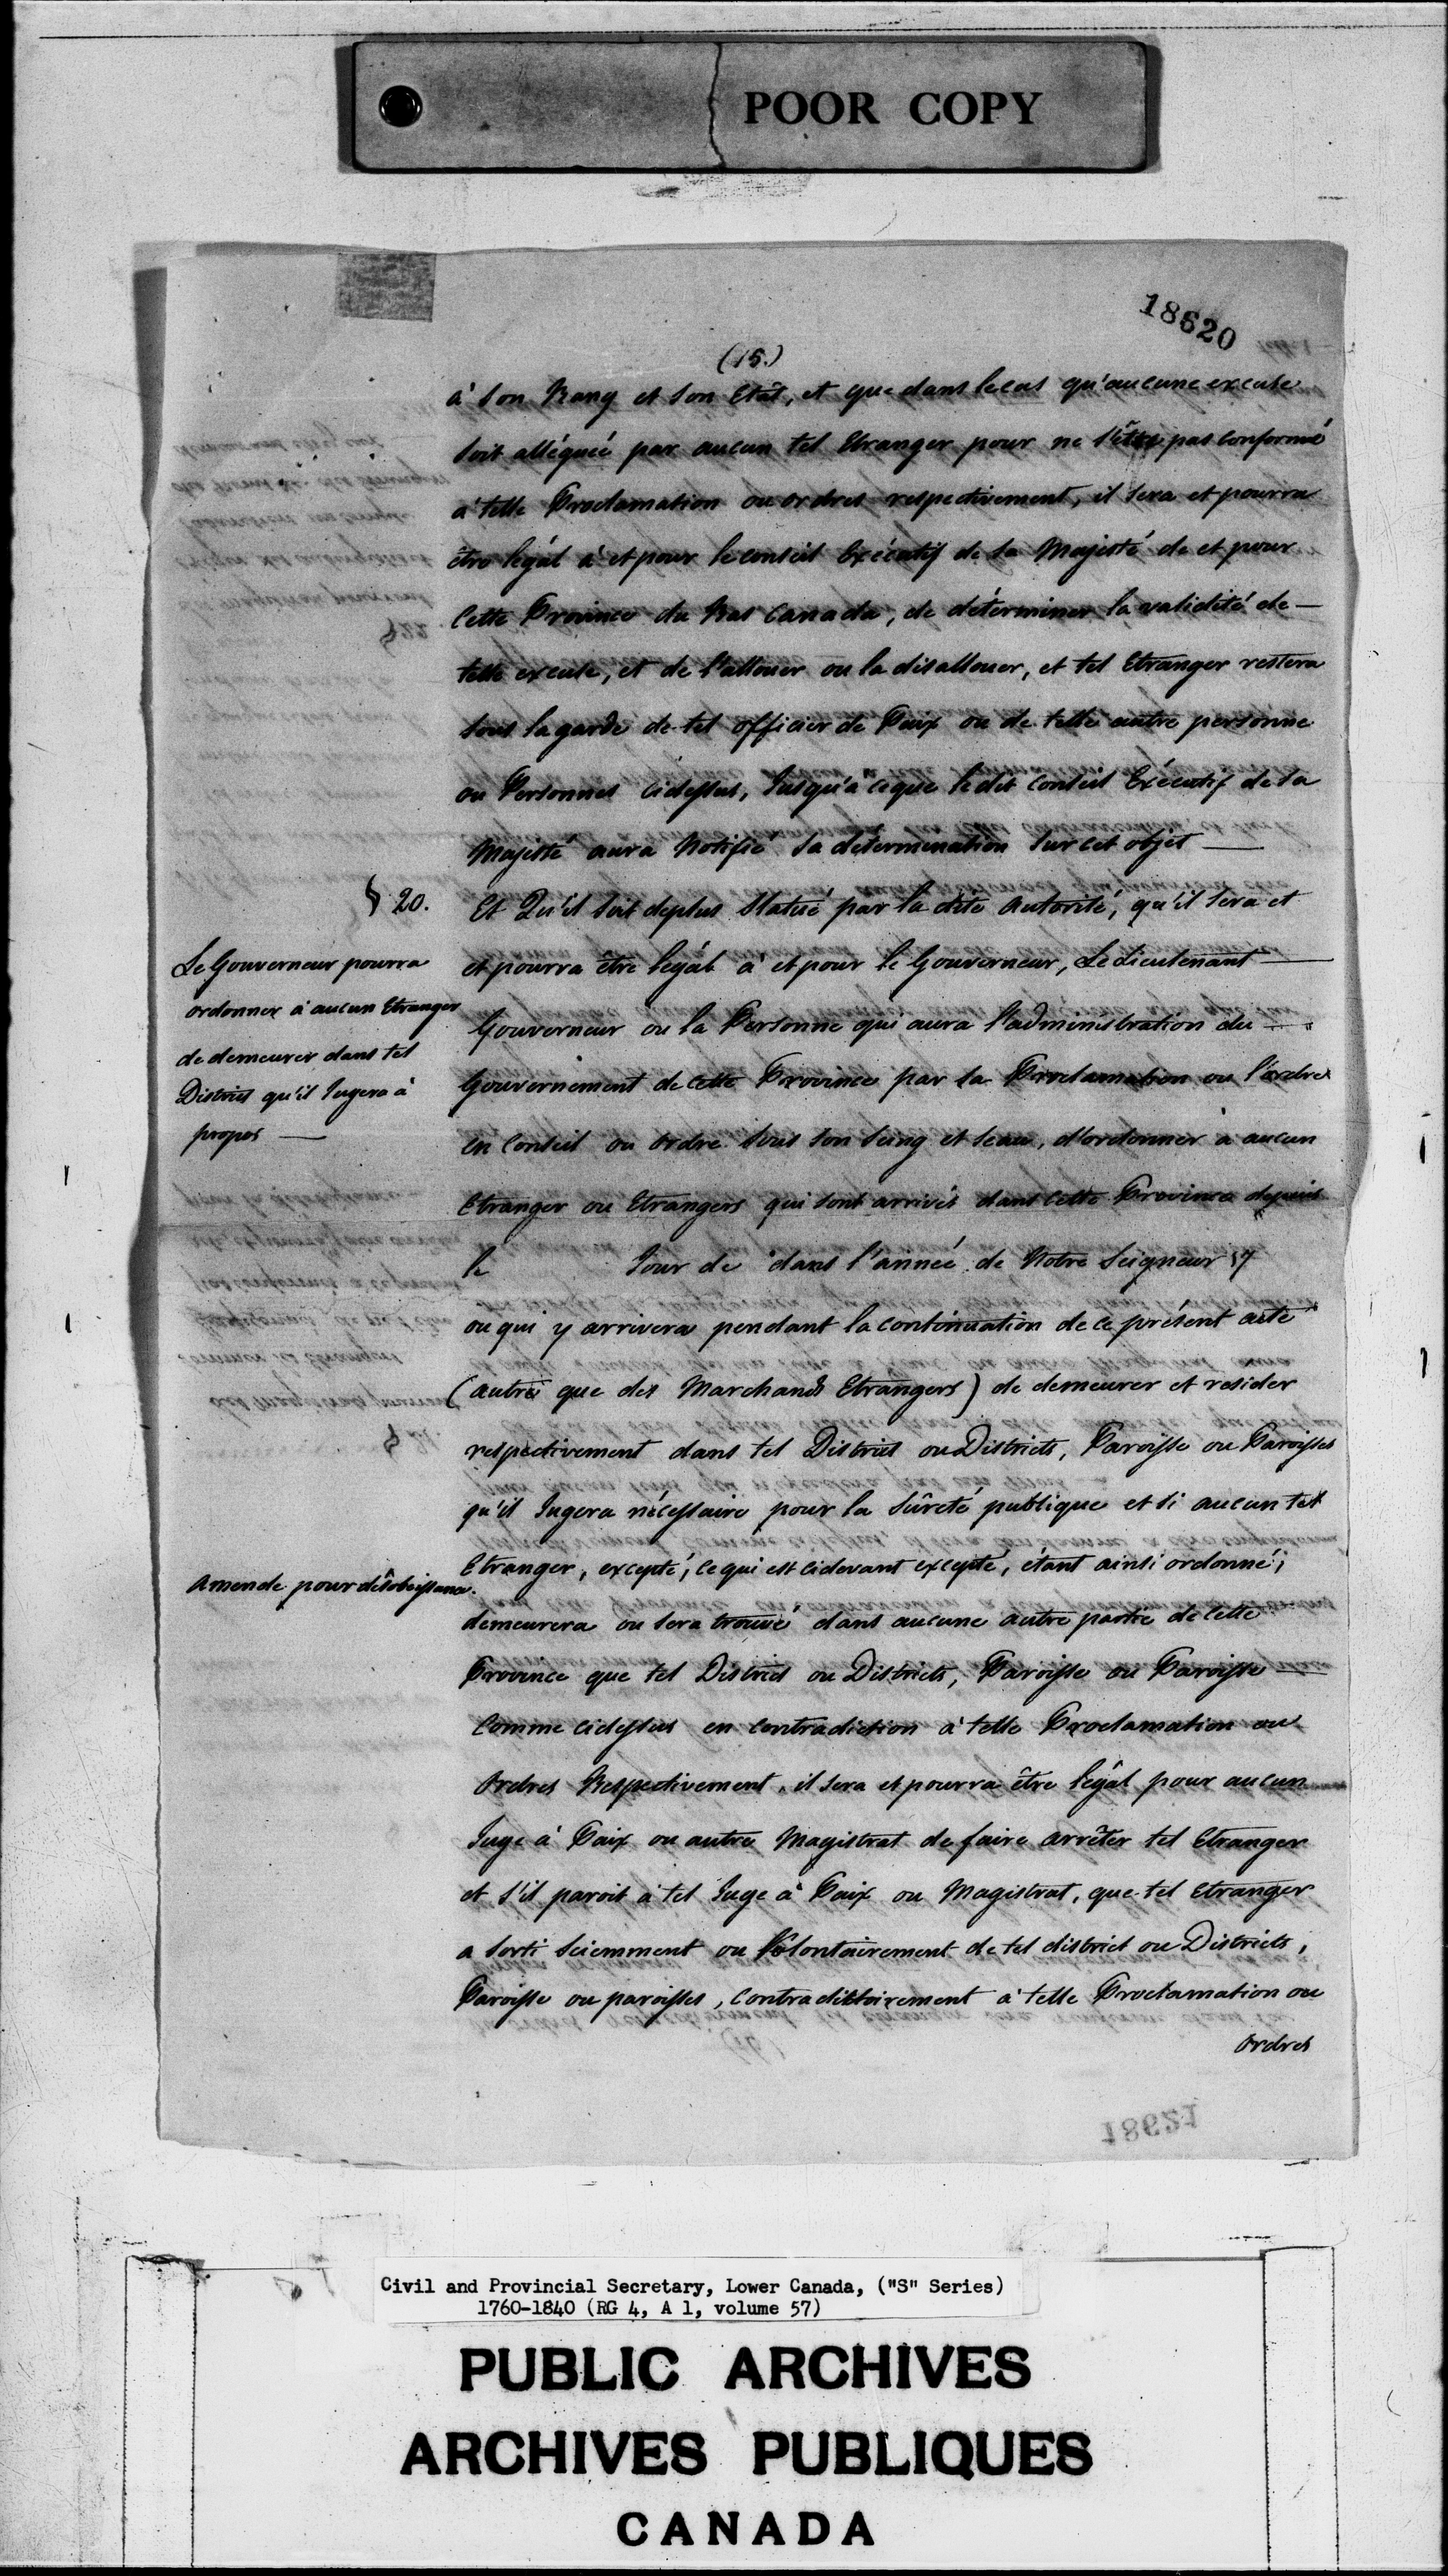 POOR COPY
18620
(15.)
à Son Rang et Son Etât, et que dans le cas qu'aucune excuse
Soit alléguée par aucun tel Etranger pour ne S'être pas conformé
à telle Proclamation ou ordres respectivement, il Sera et pourra
être légal à et pour le conseil Exécutif de Sa Majesté de et pour
Cette Province du Bas Canada, de déterminer la validité de —
telle excuse, et de l'allouer ou la disallouer, et tel Etranger restera
Sous la garde de tel officier de Paix ou de telle autre personne
ou Personnes cidessus, Jusqu'à ceque le dit Conseil Exécutif de Sa
Majesté aura Notifié Sa détermination Sur cet objet —
§ 20.
Et Qu'il Soit deplus Statué par la dite Autorité, qu'il Sera et
Le Gouverneur pourra
ordonner à aucun Etranger
de demeurer dans tel
District qu'il Jugera à
propos —
et pourra être legál à et pour le Gouverneur, Le Lieutenant —
Gouverneur ou la Personne qui aura l'administration du —
Gouvernement de cette Province par Sa Proclamation ou l'ordre
en Conseil ou ordre Sous Son Seing et Seau, d'ordonner à aucun
Etranger ou Etrangers qui Sont arrivés dans cette Province depuis
le Jour de dans l'année de Notre Seigneur 17
ou qui y arrivera pendant la continuation de ce présent acte
(autres que des Marchands Etrangers) de demeurer et resider
respectivement dans tel District ou Districts, Paroisse ou Paroisses
qu'il Jugera nécessaire pour la Sûreté publique et Si aucun tel
Amende pour désobeissance.
Etranger, excepté, ce qui est cidevant excepté, étant ainsi ordonné,
demeurera ou Sera trouvé dans aucune autre partie de cette
Province que tel District ou Districts, Paroisse ou Paroisse —
Comme cidessus en contradiction à telle Proclamation ou
Ordres Respectivement, il Sera et pourra être legál pour aucun
Juge à Paix ou autre Magistrat de faire arrêter tel Etranger
et S'il paroit à tel Juge à Paix ou Magistrat, que tel Etranger
a Sorti Sciemment ou Volontairement de tel district ou Districts,
Paroisse ou paroisses, Contradictoirement à telle Proclamation ou
Ordres
18621
Civil and Provincial Secretary, Lower Canada, ("S" Series)
1760-1840 (RG 4, A 1, volume 57)
PUBLIC ARCHIVES
ARCHIVES PUBLIQUES
CANADA